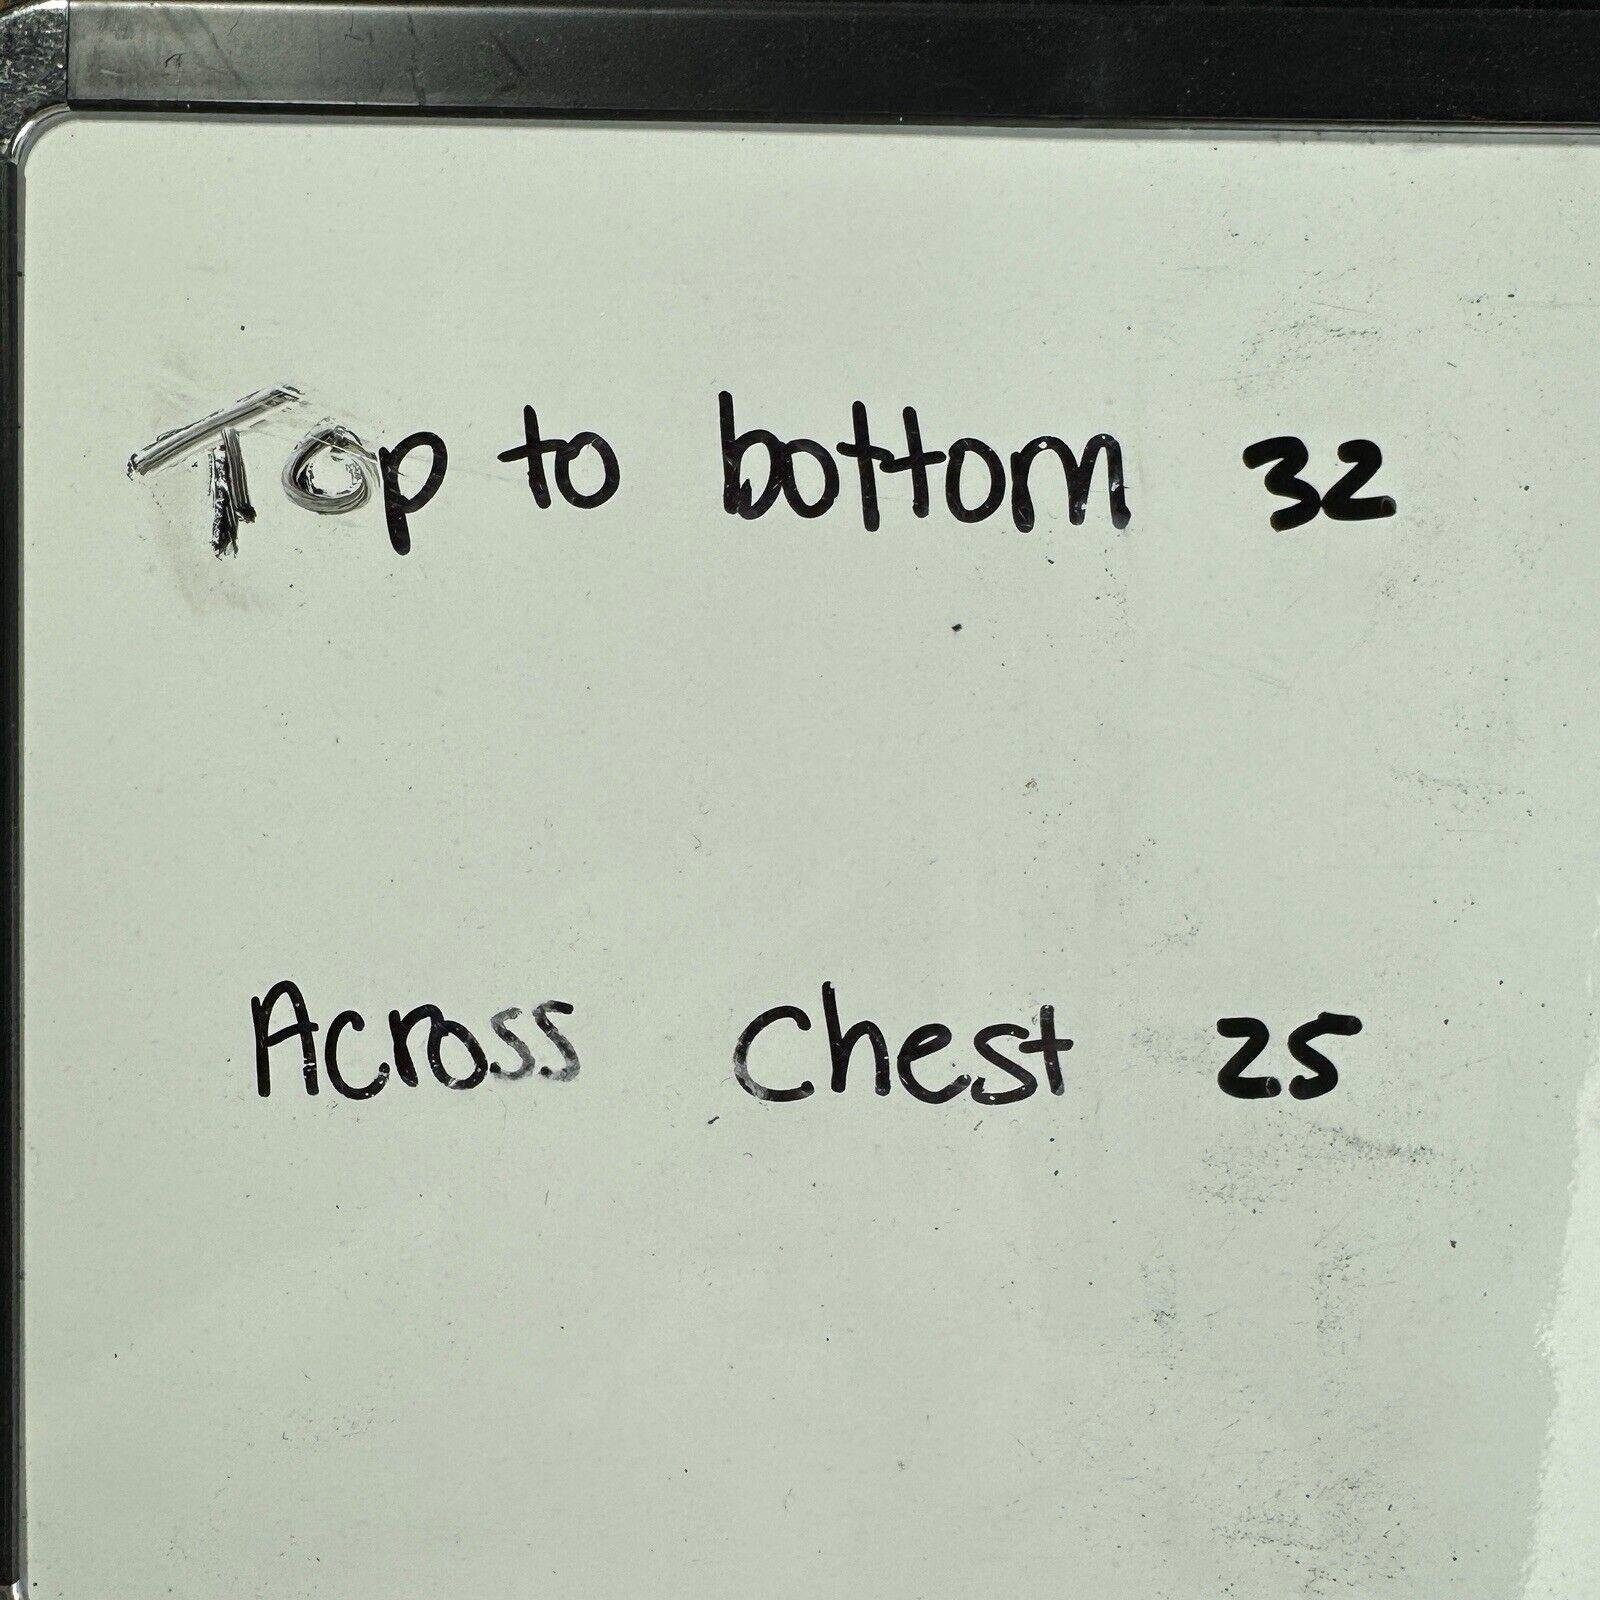 Top to bottom 32
Across Chest 25